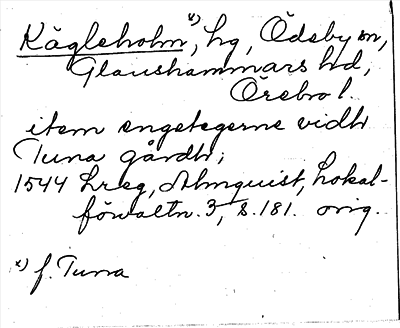 Kägleholm x), hg, Ödeby sn,
Glanshammars hd,
Örebro l.
item engetegerne vidh
Tuna gårdh;
1544 Lreg, Almquist, Lokal-
förvaltn. 3, s. 181. orig.
x) f. Tuna